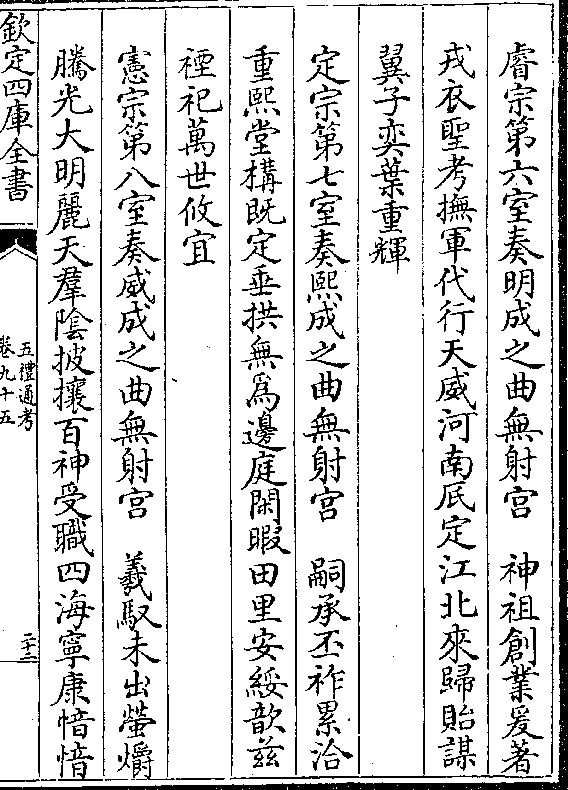 睿宗第六室奏明成之曲無射宫　神祖創業爰著
戎衣聖考撫軍代行天威河南底定江北來歸貽謀
翼子奕葉重輝
定宗第七室奏熙成之曲無射宫　嗣承丕祚累洽
重熙堂構既定垂拱無爲邊庭閑暇田里安綏歆兹
禋祀萬世攸宜
憲宗第八室奏威成之曲無射宫　羲馭未出螢爝
騰光大明麗天羣陰披攘百神受職四海寧康愔愔
欽定四庫全書
五禮通考
卷九十五
二十二